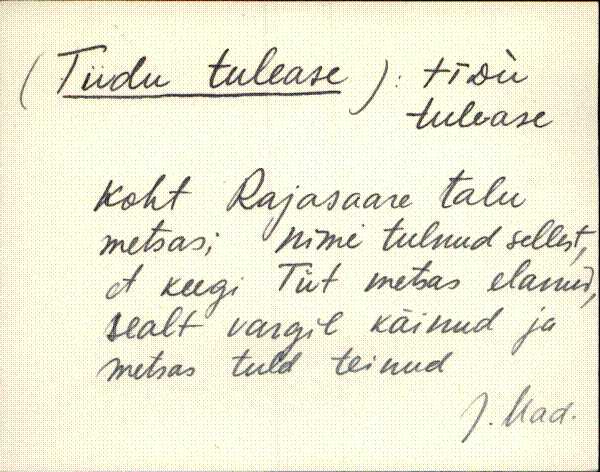 (Tiidu tulease): tīDù
tulease
koht Rajasaare talu
metsas; nimi tulnud sellest,
et keegi Tiit metsas elanud,
sealt vargil käinud ja
metsas tuld teinud
J. Mad.